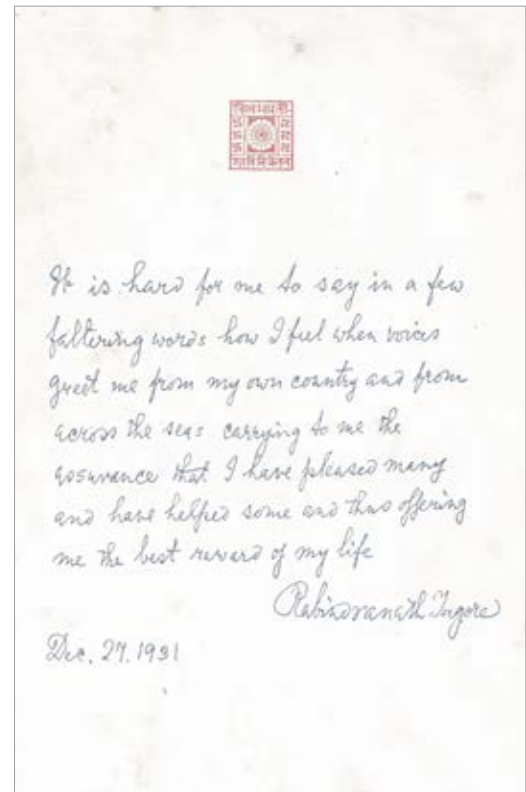 It is hard for me to say in a few
faltering words how I feel when voices
greet me from my own country and from
across the seas carrying to me the
assurance that I have pleased many
and have helped some and thus offering
me the best reward of my life
Rabindranath Tagore
Dec. 27. 1931